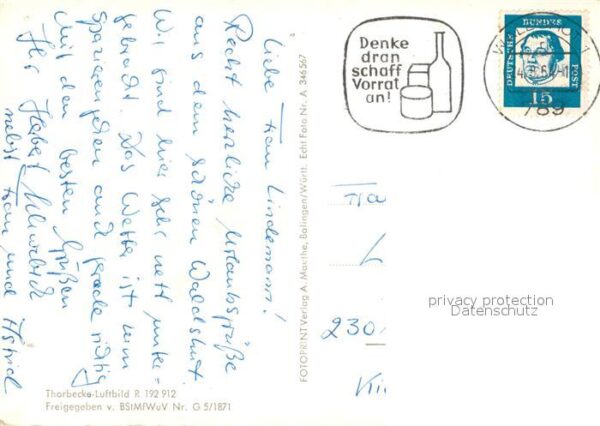 Liebe Frau Lindemann!
Recht herzliche Urlaubsgrüße
aus dem schönen Waldshut.
Wir sind hier sehr nett unter=
gebracht. Das Wetter ist zum
Spazierengehen auch gerade richtig
Mit den besten Grüßen
Ihr
nebst Frau und Astrid
Thorbecke-Luftbild R 192 912
Freigegeben v. BStMfWuV Nr. G 5/1871
FOTOPRINT Verlag A. Maathe, Balingen/Württ. Echt Foto Nr. A 346567
Denke
dran
schaff
Vorrat
an!
DEUTSCHE
BUNDES
POST
15
789
230
privacy protection
Datenschutz